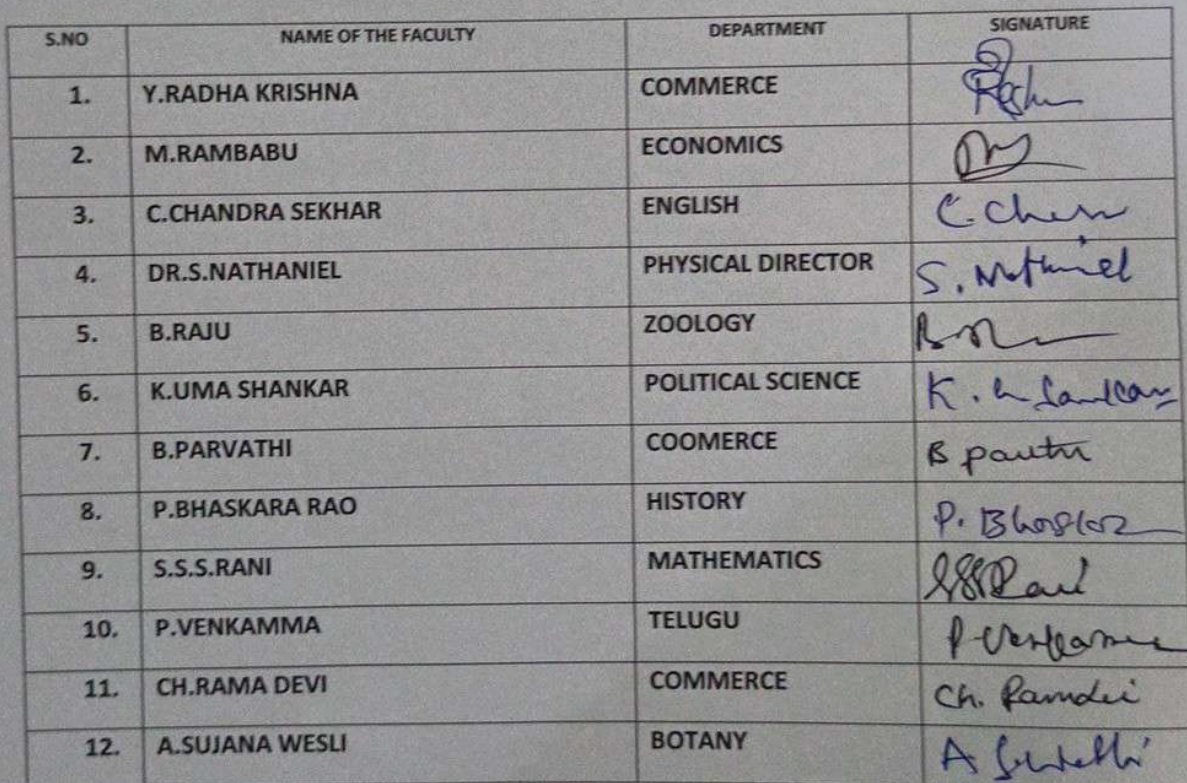 S.NO NAME OF THE FACULTY DEPARTMENT SIGNATURE
1. Y.RADHA KRISHNA COMMERCE
2. M.RAMBABU ECONOMICS
3. C.CHANDRA SEKHAR ENGLISH C.
4. DR.S.NATHANIEL PHYSICAL DIRECTOR S. Nathaniel
5. B.RAJU ZOOLOGY
6. K.UMA SHANKAR POLITICAL SCIENCE K.
7. B.PARVATHI COOMERCE B
8. P.BHASKARA RAO HISTORY P.
9. S.S.S.RANI MATHEMATICS
10. P.VENKAMMA TELUGU P
11. CH.RAMA DEVI COMMERCE Ch.
12. A.SUJANA WESLI BOTANY A